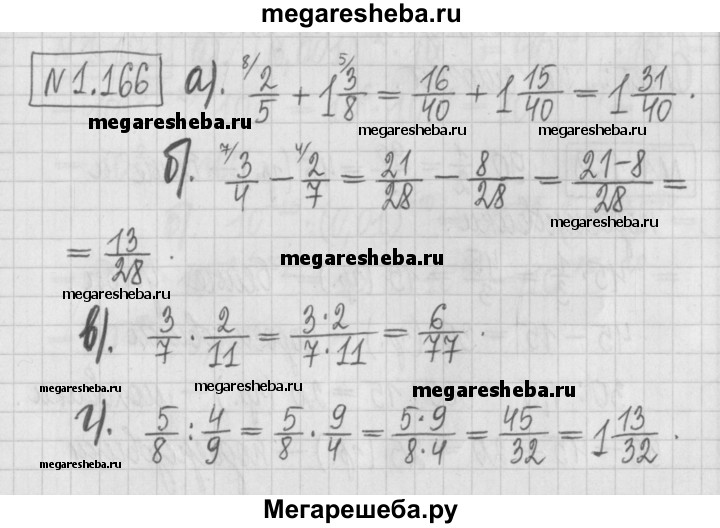 megaresheba.ru
№1.166 а). 8/ 2/5 + 1 5/ 3/8 = 16/40 + 1 15/40 = 1 31/40 .
megaresheba.ru megaresheba.ru megaresheba.ru
б). 7/ 3/4 − 4/ 2/7 = 21/28 − 8/28 = (21−8)/28 =
megaresheba.ru
= 13/28 .
megaresheba.ru
megaresheba.ru
в). 3/7 · 2/11 = (3·2)/(7·11) = 6/77 .
megaresheba.ru megaresheba.ru megaresheba.ru
г). 5/8 : 4/9 = 5/8 · 9/4 = (5·9)/(8·4) = 45/32 = 1 13/32 .
megaresheba.ru megaresheba.ru megaresheba.ru
Мегарешеба.ру